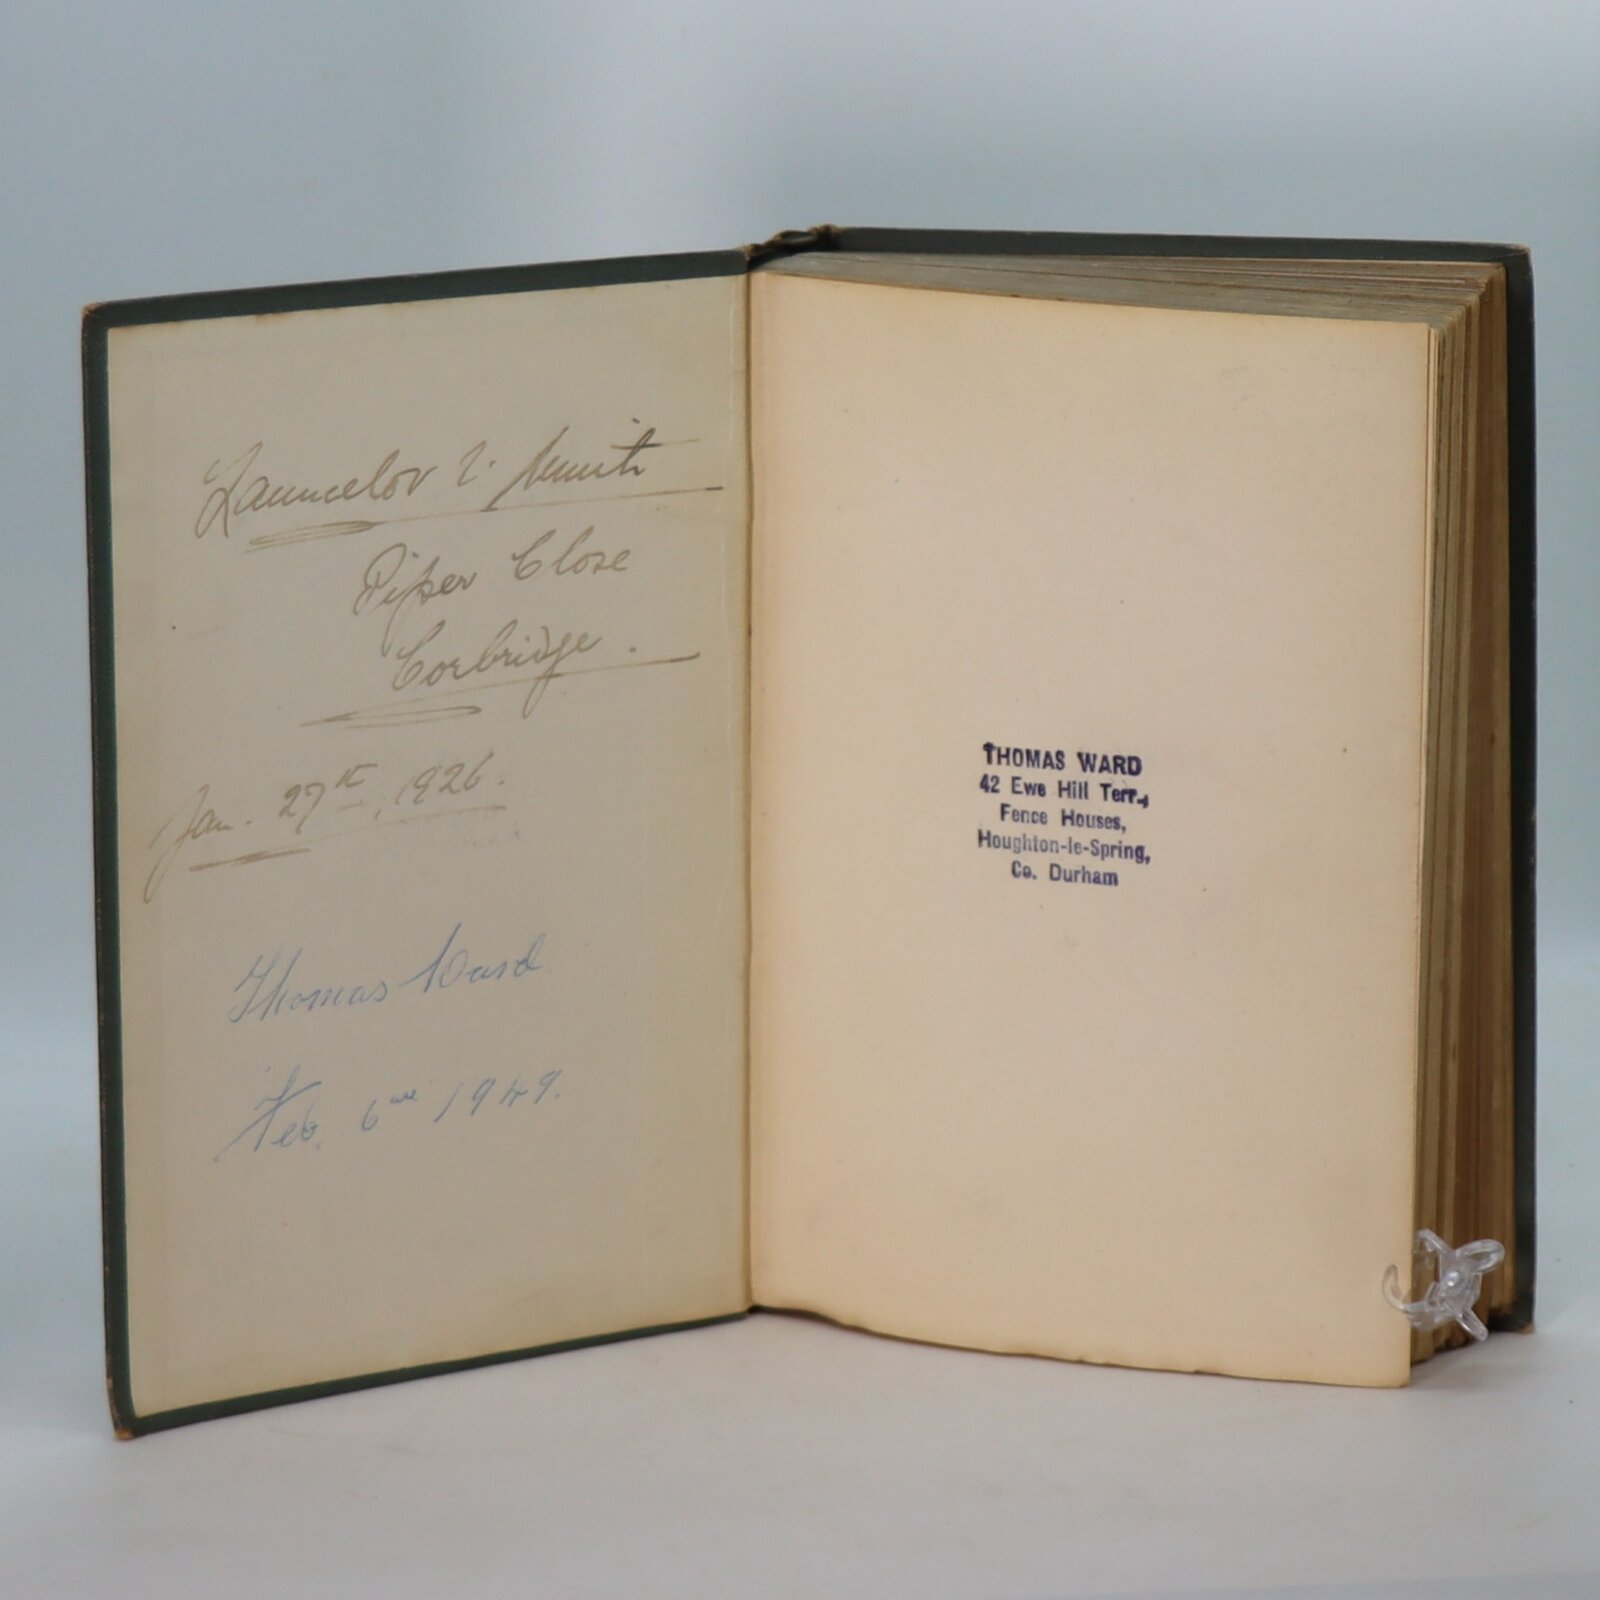 Launcelot I. Smith
Piper Close
Corbridge.
Jan. 27th, 1926.
Thomas Ward
Feb. 6 1949.
THOMAS WARD
42 Ewe Hill Terr.,
Fence Houses,
Houghton-le-Spring,
Co. Durham